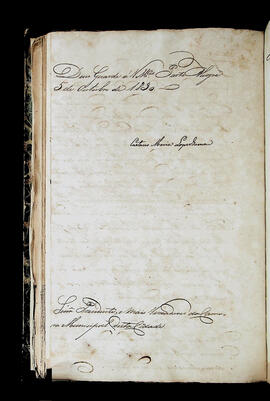 Deos Guarde á V. Mces Porto Alegre
5 de Outubro de 1830
Caetano Maria Lopes Gama
Snrs. Presidente, e mais Vereadores da Cama-
ra Municipal desta Cidade